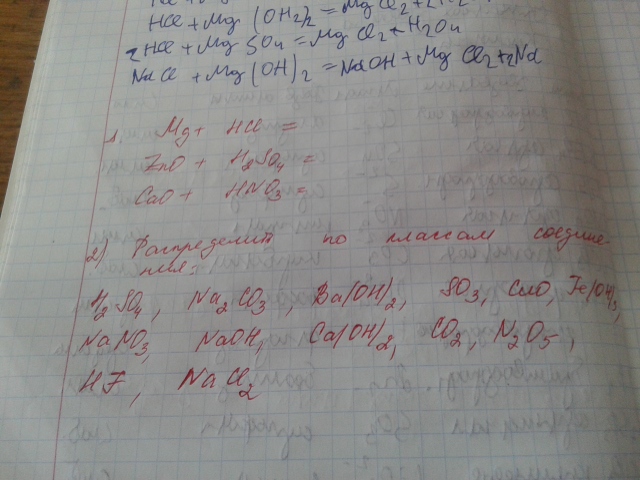 HCl + Mg(OH2)2 = Mg Cl2 +
2HCl + Mg SO4 = Mg Cl2 + H2O4
NaCl + Mg(OH)2 = NaOH + Mg Cl2 + 2Na
1. Mg + HCl =
ZnO + H2SO4 =
CaO + HNO3 =
2) Распределить по классам соедине-
ния:
H2SO4, Na2CO3, Ba(OH)2, SO3, CaO, Fe(OH)3,
NaNO3, NaOH, Ca(OH)2, CO2, N2O5,
HF, NaCl2